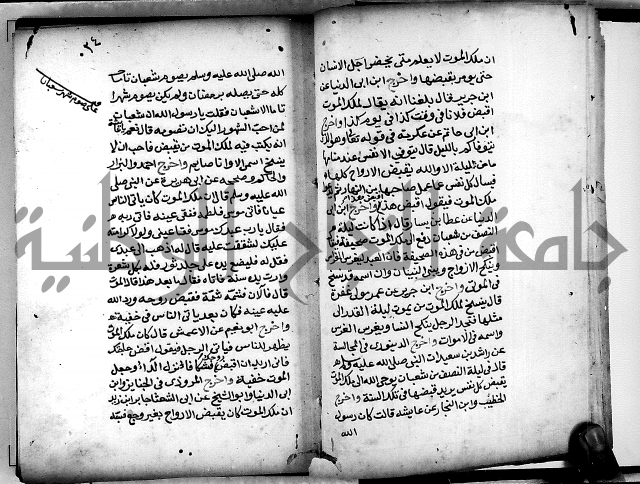 ان ملك الموت لا يعلم متى يحضر اجل الانسان
حتى يومر بقبضها واخرج ابن ابى الدنيا عن
ابن جريج قال بلغنا انه يقال لملك الموت
اقبض فلانا فى وقت كذا فى يوم كذا واخرج
ابن ابى حاتم عن عكرمة فى قوله تعالى وهو الذى
يتوفاكم بالليل قال يتوفى الانفس عند منامها
ما من ليلة الا والله يقبض الارواح كلها
فيسال كل نفس عما عمل صاحبها من النهار ثم يدعو
ملك الموت فيقول اقبض هذا واخرج ابن ابى
الدنيا عن عطا بن يسار قال اذا كانت ليلة
النصف من شعبان دفع الى ملك الموت صحيفة فيقال
اقبض من فى هذه الصحيفة فان العبد ليغرس الغرس
وينكح الازواج ويبنى البنيان وان اسمه قد نسخ
فى الموتى واخرج ابن جرير عن عمر مولى غفرة
قال ينسخ لملك الموت من يموت ليلة القدر الى
مثلها فتجد الرجل ينكح النسا ويغرس الغرس
واسمه فى الاموات واخرج الدينورى فى المجالسة
عن راشد بن سعيد ان النبى صلى الله عليه وسلم
قال فى ليلة النصف من شعبان يوحى الله الى ملك الموت
بقبض كل نفس يريد قبضها فى تلك السنة واخرج
الخطيب وابن النجار عن عايشة قالت كان رسول
الله
٣٤
الله صلى الله عليه وسلم يصوم شعبان
كله حتى يصله برمضان ولم يكن يصوم شهرا
تاما الا شعبان فقلت يا رسول الله ان شعبان
لمن احب الشهور اليك ان تصومه قال نعم
انه يكتب فيه لملك الموت من يقبض فاحب ان لا
ينسخ اسمى الا وانا صايم واخرج احمد والبزار
والحاكم وصححه عن ابى هريرة عن النبى صلى
الله عليه وسلم قال ان ملك الموت كان ياتى الناس
عيانا فاتى موسى فلطمه ففقا عينه فاتى ربه
فقال يا رب عبدك موسى فقا عينى ولولا كرامته
عليك لشققت عليه قال له اذهب الى عبدى
فقل له فليضع يده على جلد ثور فله بكل شعرة
وارت يده سنة فاتاه فقال ما بعد هذا قال الموت
قال فالان فشمه شمة فقبض روحه ورد الله
عليه عينه فكان بعد ياتى الناس فى خفية
واخرج ابو نعيم عن الاعمش قال كان ملك الموت
يظهر للناس فياتى الرجل فيقول اقض حاجتك
فانى اريد ان اقبض روحك فشكا فانزل الدا وجعل
الموت خفية واخرج المروذى فى الجنايز وابن
ابى الدنيا وابو الشيخ عن ابى الشعثا جابر ابن زيد
ان ملك الموت كان يقبض الارواح بغير وجع فسبه
جامعة الروح الوطنية